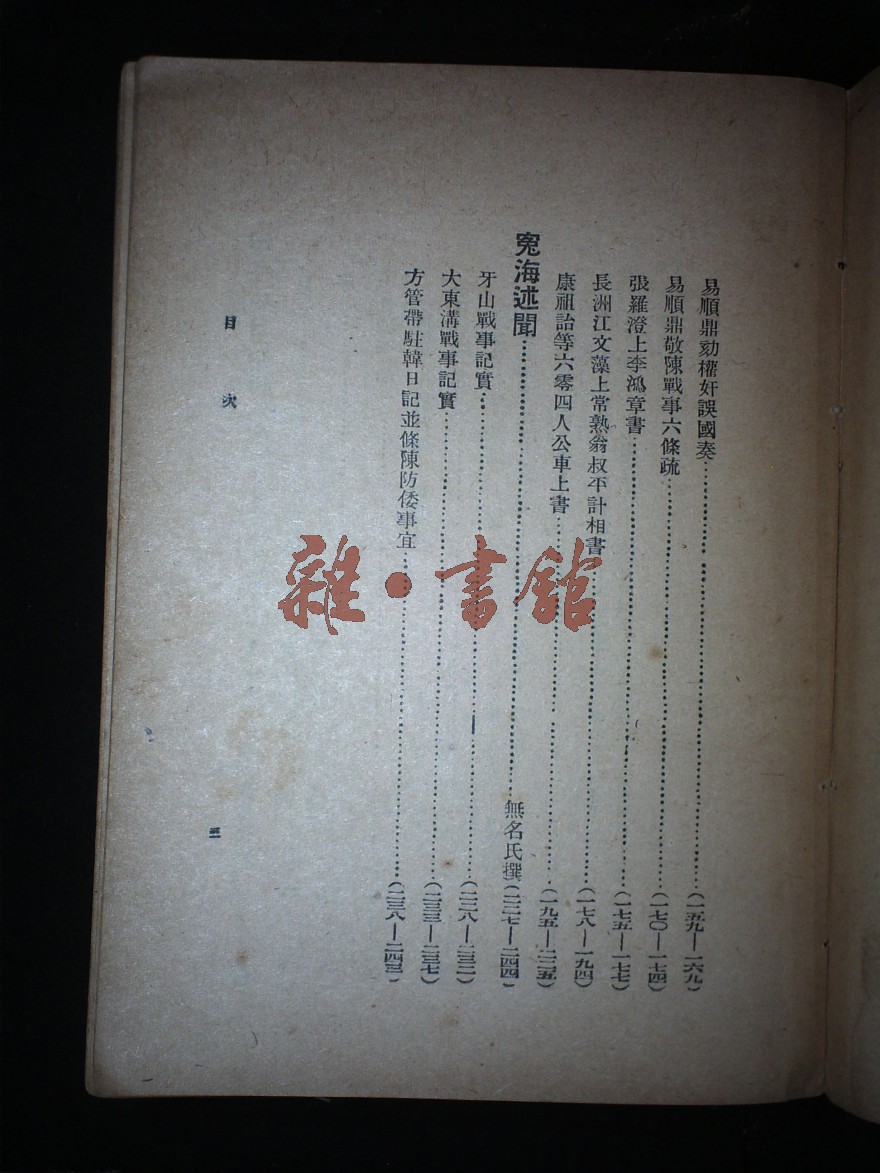 易順鼎劾權奸誤國奏……(一五九—一六九)
易順鼎敬陳戰事六條疏……(一七〇—一七四)
張羅澄上李鴻章書……(一七五—一七七)
長洲江文藻上常熟翁叔平計相書……(一七八—一九四)
康祖詒等六零四人公車上書……(一九五—二二五)
冤海述聞……無名氏撰(二二七—二四四)
牙山戰事記實……(二二八—二三二)
大東溝戰事記實……(二三三—二三七)
方管帶駐韓日記並條陳防倭事宜……(二三八—二四三)
目次
三
雜·書館